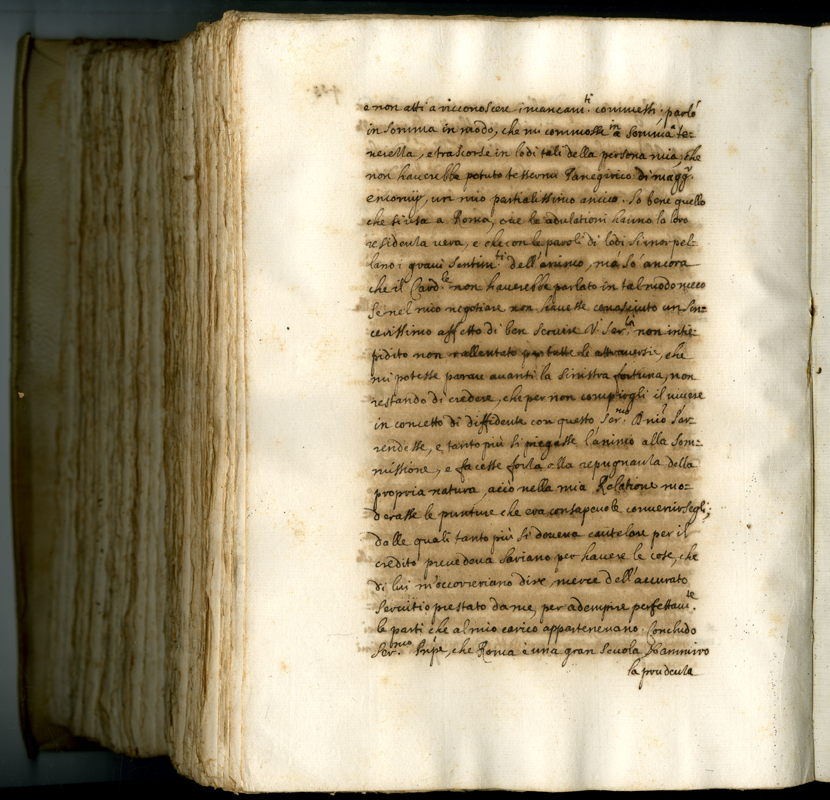 e non atti a riconoscere i mancam.ti commessi; parlò
in somma in modo, che mi commosse in a somma te=
nerella, e trascorse in lodi tali della persona mia, che
non hauerebbe potuto tesserne Panegirico di magg.r
encomij, un mio partialissimo amico. So bene quello
che si usa a Roma, oue le adulationi hanno la loro
residenza uera, e che con le parole di lodi si inorpel=
lano i graui sentim.ti dell'animo, mà sò ancora
che il Card.le non hauerebbe parlato in tal modo meco
se nel mio negotiare non hauesse conosciuto un sin=
cerissimo affetto di ben seruire V. Ser.tà non intie=
pidito non rallentato per tutte le attrauersie, che
mi potesse parare auanti la sinistra fortuna, non
restando di credere, che per non compirgli il uiuere
in concetto di diffidente con questo Ser.mo Dnio s'ar=
rendesse, e tanto più si piegasse l'animo alla som=
missione, e facesse forza alla repugnanza della
propria natura, acciò nella mia Relatione mo=
derasse le punture che era consapeuole conuenirsegli;
dalle quali tanto più si doueua cautelare per il
credito preuedeua sariano per hauere le cose, che
di lui m'occorreriano dire mercè dell'accurato
seruitio prestato da me, per adempire perfettam.te
le parti che al mio carico apparteneuano. Concludo
Ser.mo Prīpe, che Roma è una gran scuola
la prudenza